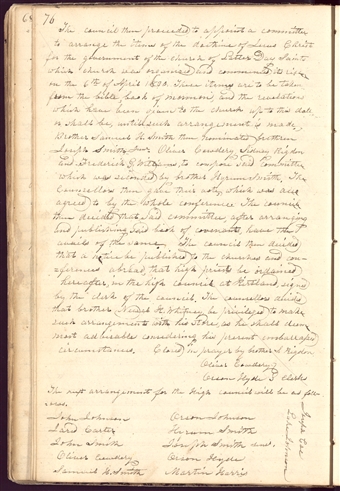 76
The council then proceeded to appoint a committee
to arrange the items of the doctrine of Jesus Christ
for the government of the church of Latter Day Saints
which church was organized and commenced its rise
on the 6th of April 1830. These items are to be taken
from the bible, book of mormon, and the revelations
which have been given to the church up to this date
or shall be, until such arrangement is made.
Brother Samuel H. Smith then nominated brethren
Joseph Smith Jun. Oliver Cowdery, Sidney Rigdon
and Frederick G. Williams, to compose said Committee
which was seconded by brother Hyrum Smith. The
Counsellors then gave their vote, which was also
agreed to by the whole conference. The council
then decided that said committee, after arranging
and publishing said book of covenants, have the
avails of the same. The council then decided
that a notice be published to the churches and con-
ferences abroad, that high priests be ordained
hereafter, in the high council at Kirtland, signed
by the clerk of the council. The counsellors decided
that brother Newel K. Whitney be privileged to make
such arrangements with his Store, as he shall deem
most advisable considering his present embarrassed
circumstances. Closed in prayer by brother S. Rigdon
Oliver Cowdery
Orson Hyde } Clerks
The next arrangement for the high council will be as fol-
lows.
John Johnson Orson Johnson
Jared Carter Hyrum Smith
John Smith Joseph Smith sen.
Oliver Cowdery Orson Hyde
Samuel H. Smith Martin Harris
Joseph Coe
Luke Johnson